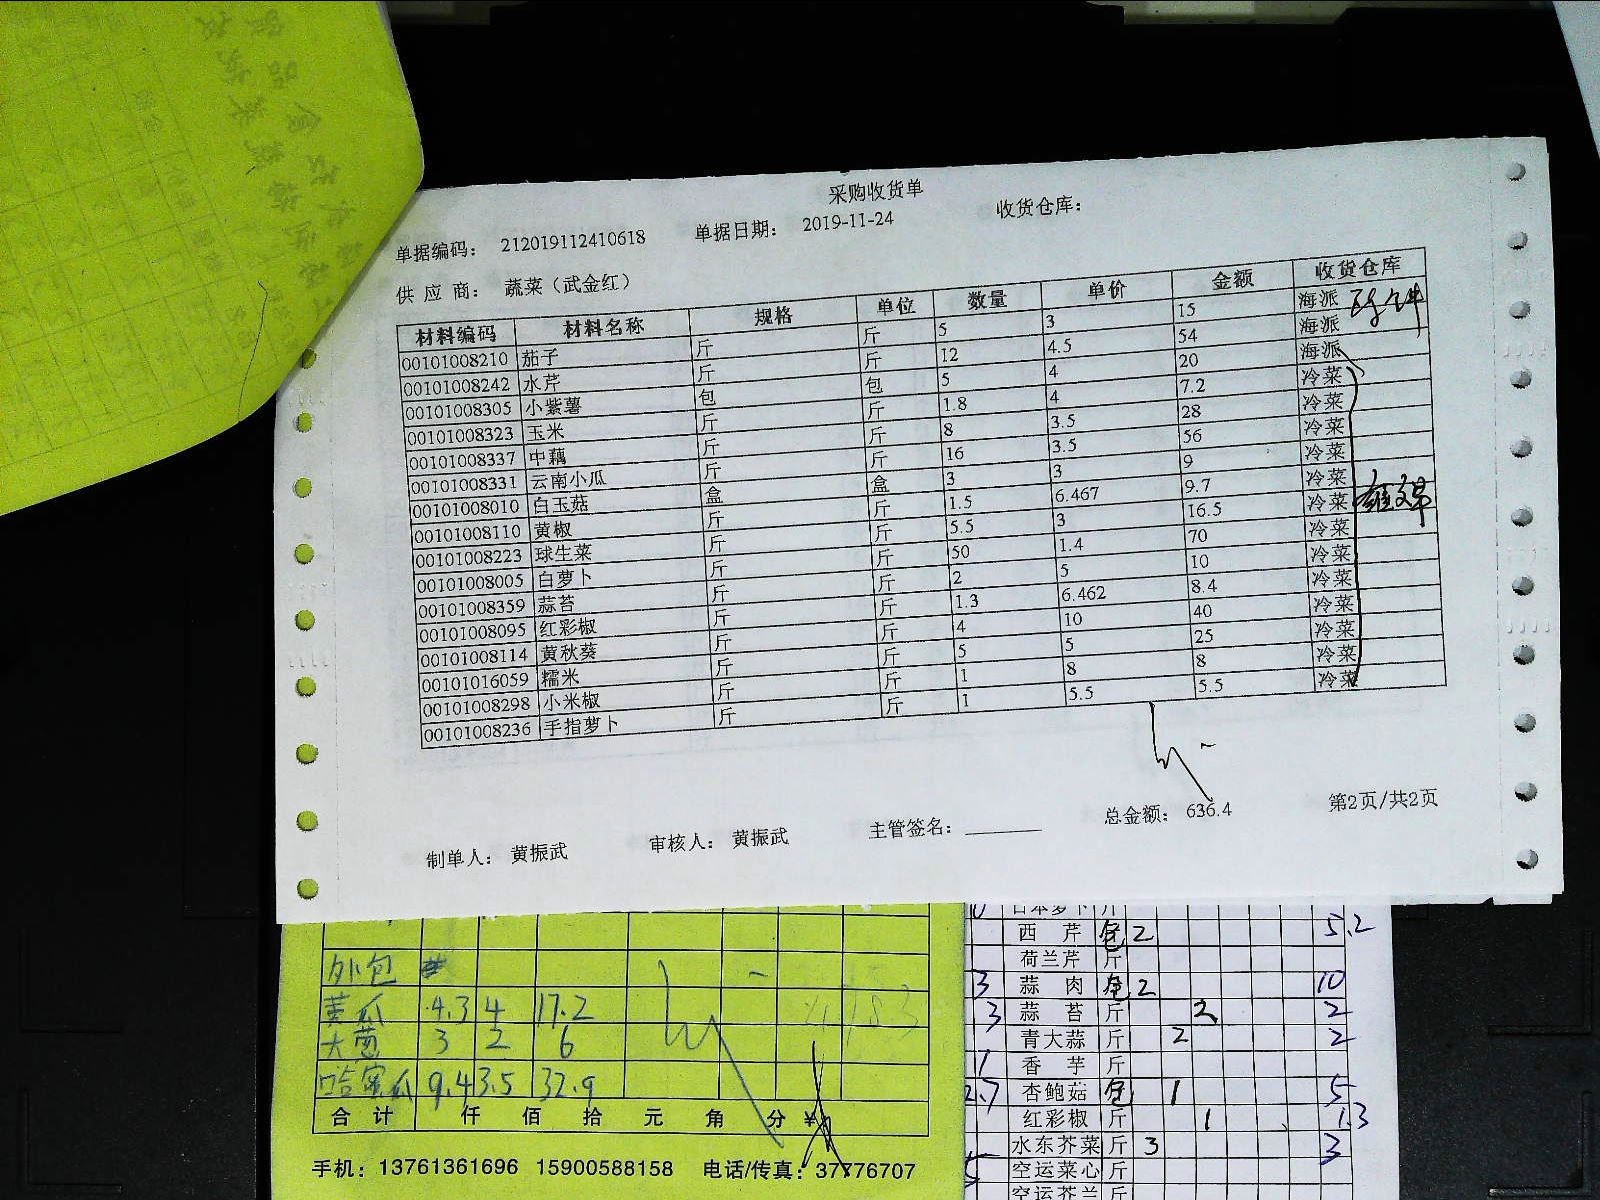 采购收货单
单据编码： 212019112410618 单据日期： 2019-11-24 收货仓库：
供 应 商： 蔬菜（武金红）
材料编码 材料名称 规格 单位 数量 单价 金额 收货仓库
00101008210 茄子 斤 斤 5 3 15 海派
00101008242 水芹 斤 斤 12 4.5 54 海派
00101008305 小紫薯 包 包 5 4 20 海派
00101008323 玉米 斤 斤 1.8 4 7.2 冷菜
00101008337 中藕 斤 斤 8 3.5 28 冷菜
00101008331 云南小瓜 斤 斤 16 3.5 56 冷菜
00101008010 白玉菇 盒 盒 3 3 9 冷菜
00101008110 黄椒 斤 斤 1.5 6.467 9.7 冷菜
00101008223 球生菜 斤 斤 5.5 3 16.5 冷菜
00101008005 白萝卜 斤 斤 50 1.4 70 冷菜
00101008359 蒜苔 斤 斤 2 5 10 冷菜
00101008095 红彩椒 斤 斤 1.3 6.462 8.4 冷菜
00101008114 黄秋葵 斤 斤 4 10 40 冷菜
00101016059 糯米 斤 斤 5 5 25 冷菜
00101008298 小米椒 斤 斤 1 8 8 冷菜
00101008236 手指萝卜 斤 斤 1 5.5 5.5 冷菜
制单人： 黄振武 审核人： 黄振武 主管签名： 总金额： 636.4 第2页/共2页
外包
黄瓜 4.3 4 17.2
大葱 3 2 6
哈密瓜 9.4 3.5 32.9
合 计 仟 佰 拾 元 角 分 ¥
手机：13761361696 15900588158 电话/传真：37776707
日本萝卜 斤
西 芹 包 2 5.2
荷兰芹 斤
3 蒜 肉 包 2 10
3 蒜 苔 斤 2 2
青大蒜 斤 2 2
1 香 芋 斤
2.7 杏鲍菇 包 1 5
红彩椒 斤 1 1.3
水东芥菜 斤 3 3
5 空运菜心 斤
空运芥兰 斤